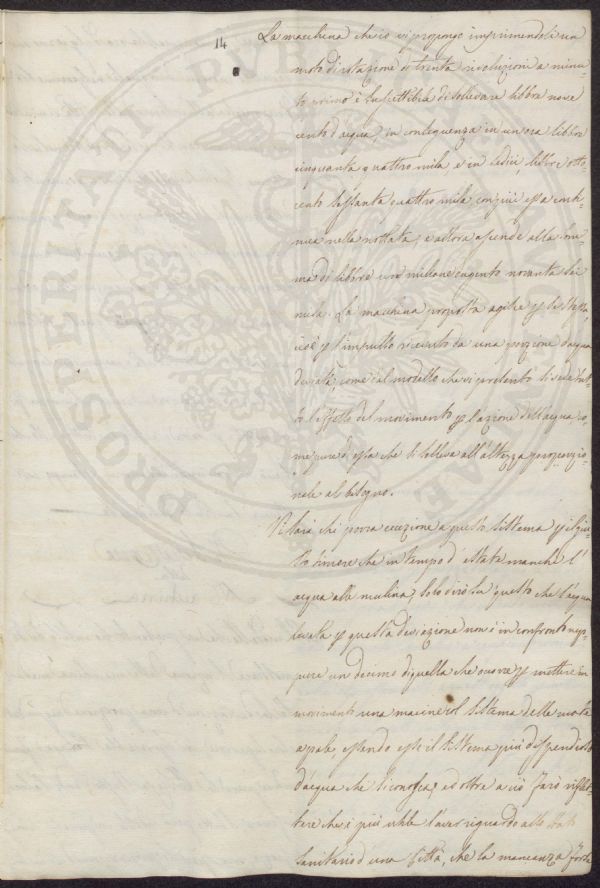 14
La macchina che io vi propongo imprimendoli un
moto di rotazione di trenta rivoluzioni a minu-
to primo è suscettibile di sollevare libbre nove
cento d'acqua, in conseguenza in un'ora libbre
cinquanta quattro mila e in sedici, libbre otto-
cento sessanta quattro mila, con più essa conti-
nua nella nottata, e allora ascende alla som-
ma di libbre un milione ducento novanta sei
mila. La macchina proposta agisce p se stessa,
cioè p l'impulso ricevuto da una porzione d'acqua
deviata, come dal modello che vi presento si vede tut-
to l'effetto del movimento p l'azione dell'acqua, co-
me pure di essa che si solleva all'altezza proporzio-
nale al bisogno.
Vi sarà chi porrà eccezione a questo sistema p il giu-
sto timore che in tempo d'estate manchi l'
acqua alle mulina, solo dirò su questo che l'acqua
levata p questa deviazione non è in confronto nep-
pure un decimo di quella che occorre p mettere in
movimento una macine col sistema delle ruote
a pale, essendo esso il sistema più dispendioso
d'acqua che si conosca, ed oltre a ciò farò riflet-
tere che i più debbe l'aver riguardo allo stato
sanitario d'una Città, che la mancanza forse
PROSPERITATI PUBLICAE AUGENDAE